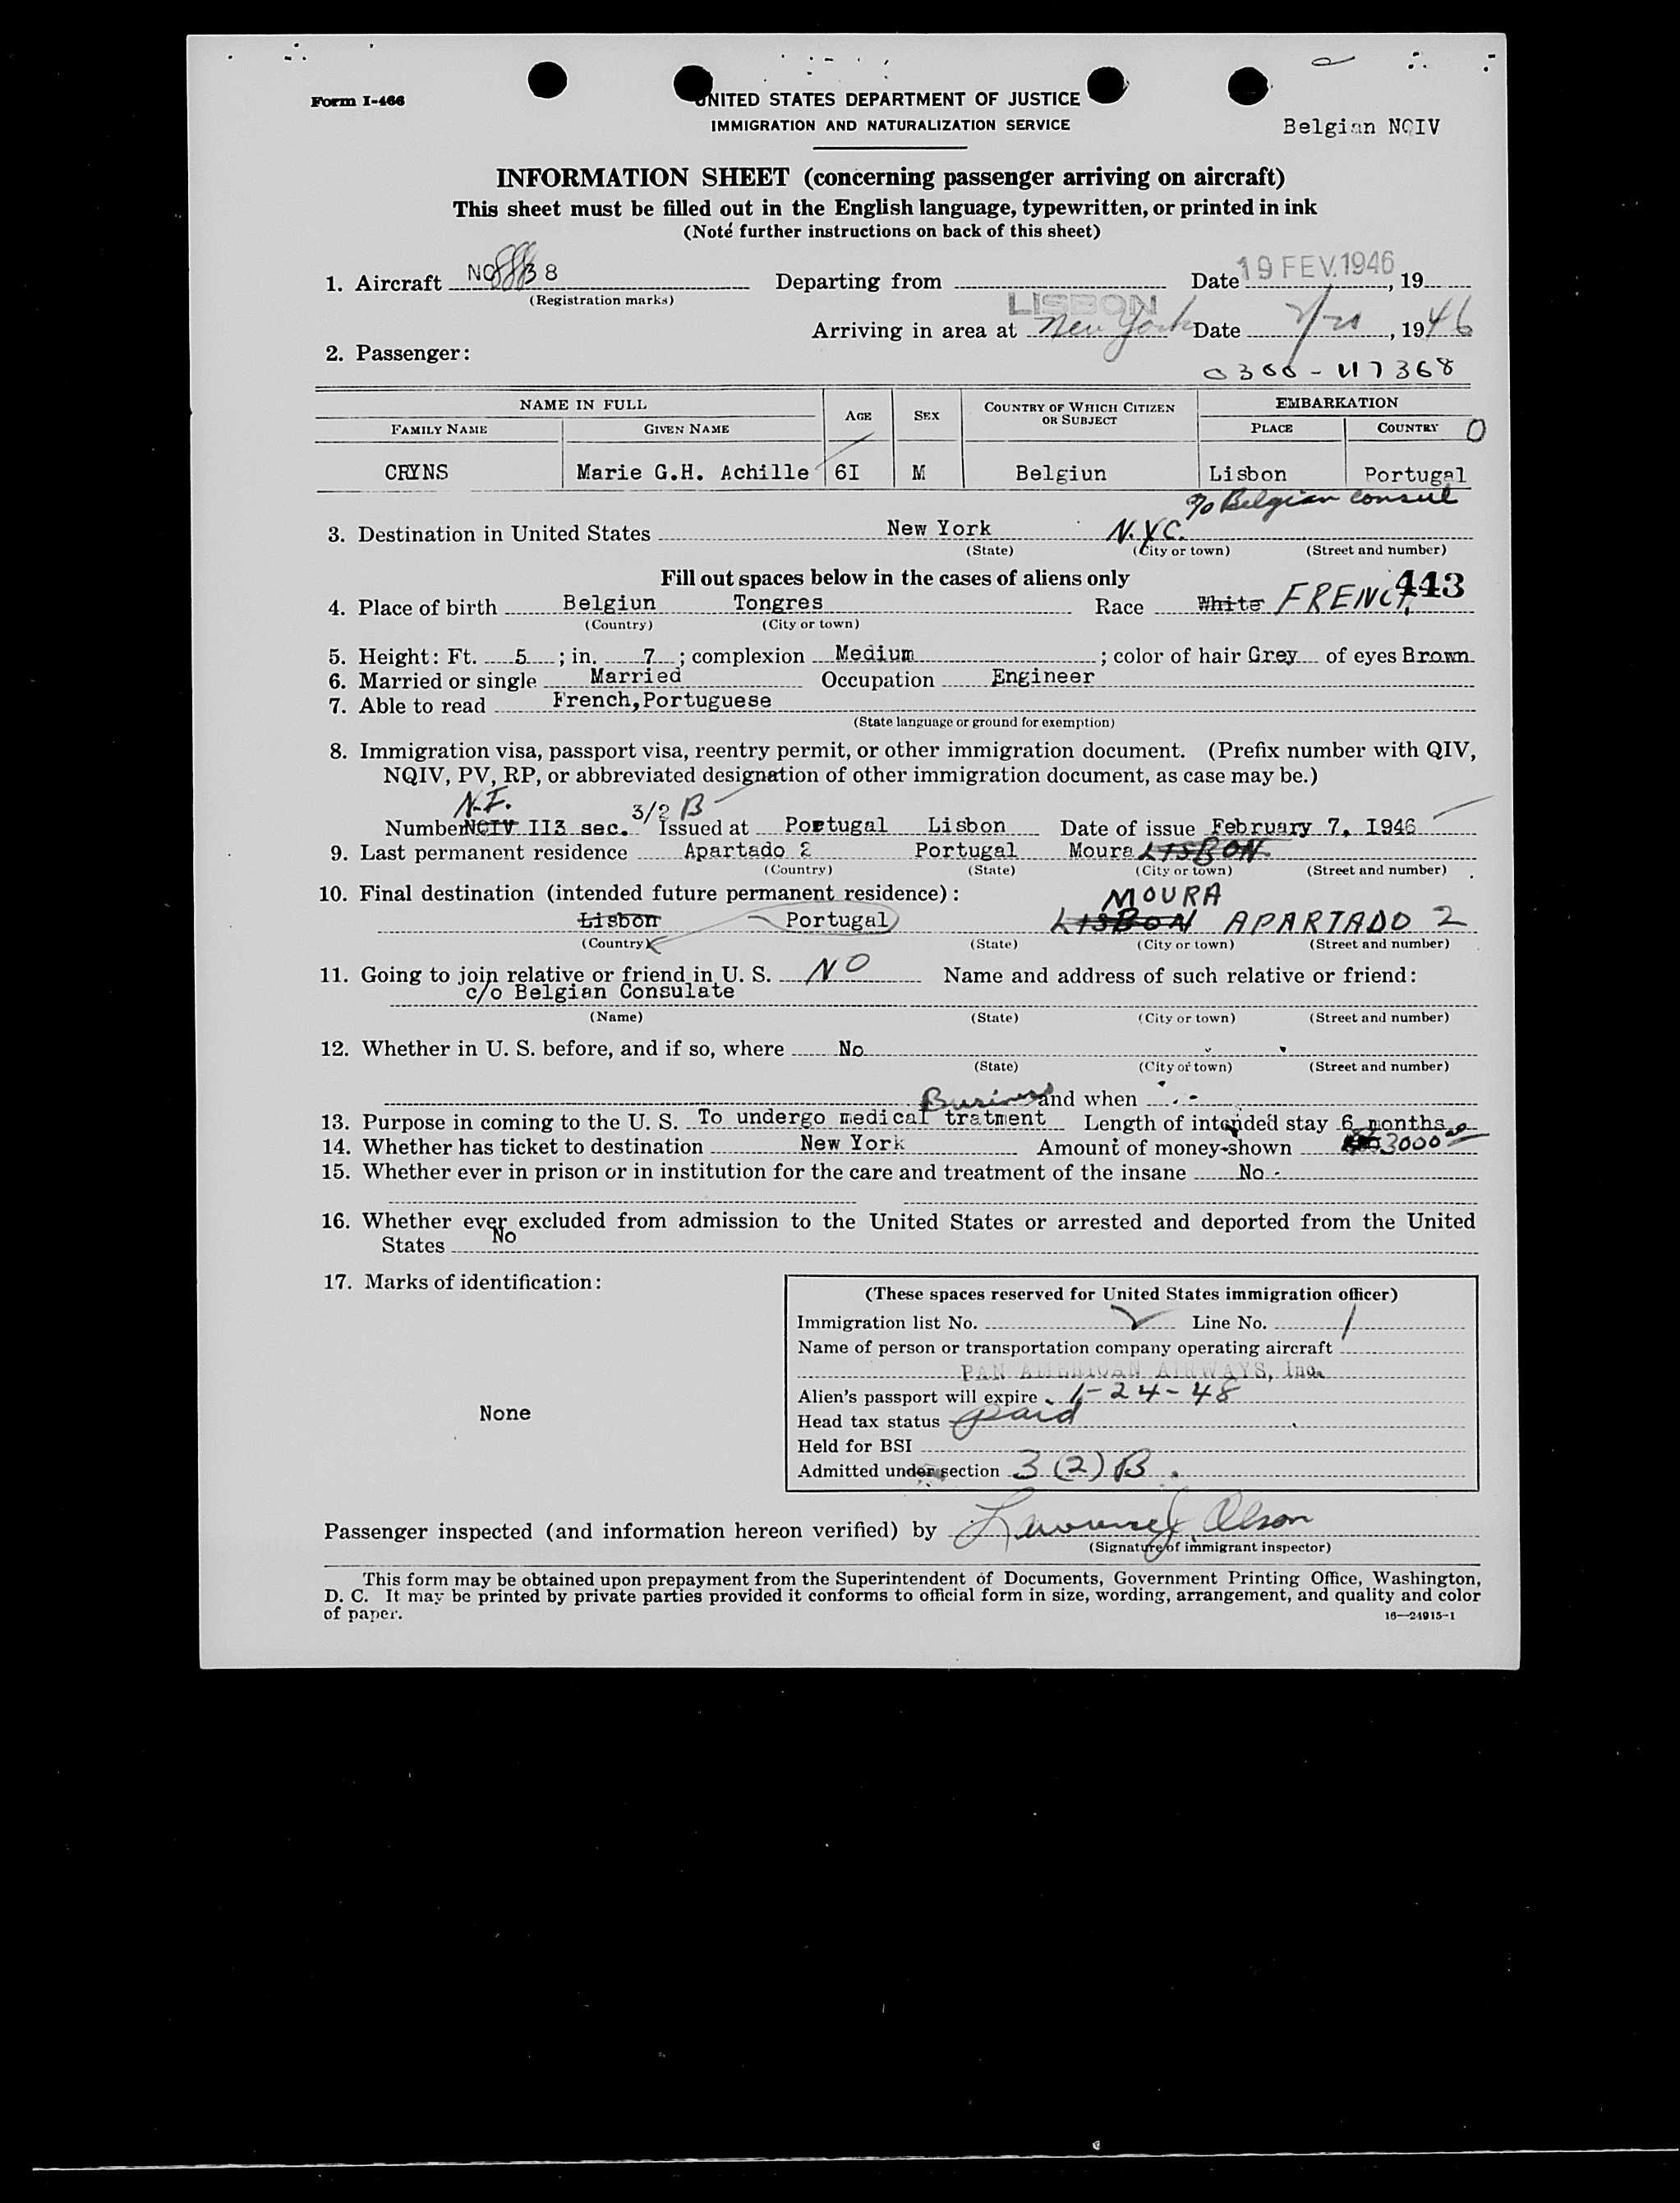 Form I-466
UNITED STATES DEPARTMENT OF JUSTICE
IMMIGRATION AND NATURALIZATION SERVICE
Belgian NQIV
INFORMATION SHEET (concerning passenger arriving on aircraft)
This sheet must be filled out in the English language, typewritten, or printed in ink
(Note further instructions on back of this sheet)
1. Aircraft Departing from LISBON Date 19 FEV. 1946, 19
(Registration marks)
Arriving in area at New York Date 2/20, 1946
2. Passenger:
0300-U17368
NAME IN FULL AGE SEX COUNTRY OF WHICH CITIZEN OR SUBJECT EMBARKATION
FAMILY NAME GIVEN NAME PLACE COUNTRY 0
CRYNS Marie G.H. Achille 6I M Belgiun Lisbon Portugal
c/o Belgian consul
3. Destination in United States New York N.Y.C.
(State) (City or town) (Street and number)
Fill out spaces below in the cases of aliens only 443
4. Place of birth Belgiun Tongres Race White FRENCH
(Country) (City or town)
5. Height: Ft. 5; in. 7; complexion Medium; color of hair Grey of eyes Brown
6. Married or single Married Occupation Engineer
7. Able to read French, Portuguese
(State language or ground for exemption)
8. Immigration visa, passport visa, reentry permit, or other immigration document. (Prefix number with QIV,
NQIV, PV, RP, or abbreviated designation of other immigration document, as case may be.)
N.I.
Number NQIV II3 sec. 3/2 B Issued at Portugal Lisbon Date of issue February 7, I946
9. Last permanent residence Apartado 2 Portugal Moura LISBON
(Country) (State) (City or town) (Street and number)
10. Final destination (intended future permanent residence):
MOURA
Lisbon Portugal LISBON APARTADO 2
(Country) (State) (City or town) (Street and number)
11. Going to join relative or friend in U. S. NO Name and address of such relative or friend:
c/o Belgian Consulate
(Name) (State) (City or town) (Street and number)
12. Whether in U. S. before, and if so, where No
(State) (City or town) (Street and number)
Business and when
13. Purpose in coming to the U. S. To undergo medical tratment Length of intended stay 6 months
14. Whether has ticket to destination New York Amount of money shown 3000
15. Whether ever in prison or in institution for the care and treatment of the insane No
16. Whether ever excluded from admission to the United States or arrested and deported from the United
States No
17. Marks of identification:
None
(These spaces reserved for United States immigration officer)
Immigration list No. Line No. 1
Name of person or transportation company operating aircraft
PAN AMERICAN AIRWAYS, Inc.
Alien's passport will expire 1-24-48
Head tax status paid
Held for BSI
Admitted under section 3 (2) B.
Passenger inspected (and information hereon verified) by Lawrence J. Olson
(Signature of immigrant inspector)
This form may be obtained upon prepayment from the Superintendent of Documents, Government Printing Office, Washington,
D. C. It may be printed by private parties provided it conforms to official form in size, wording, arrangement, and quality and color
of paper.
16—24915-1